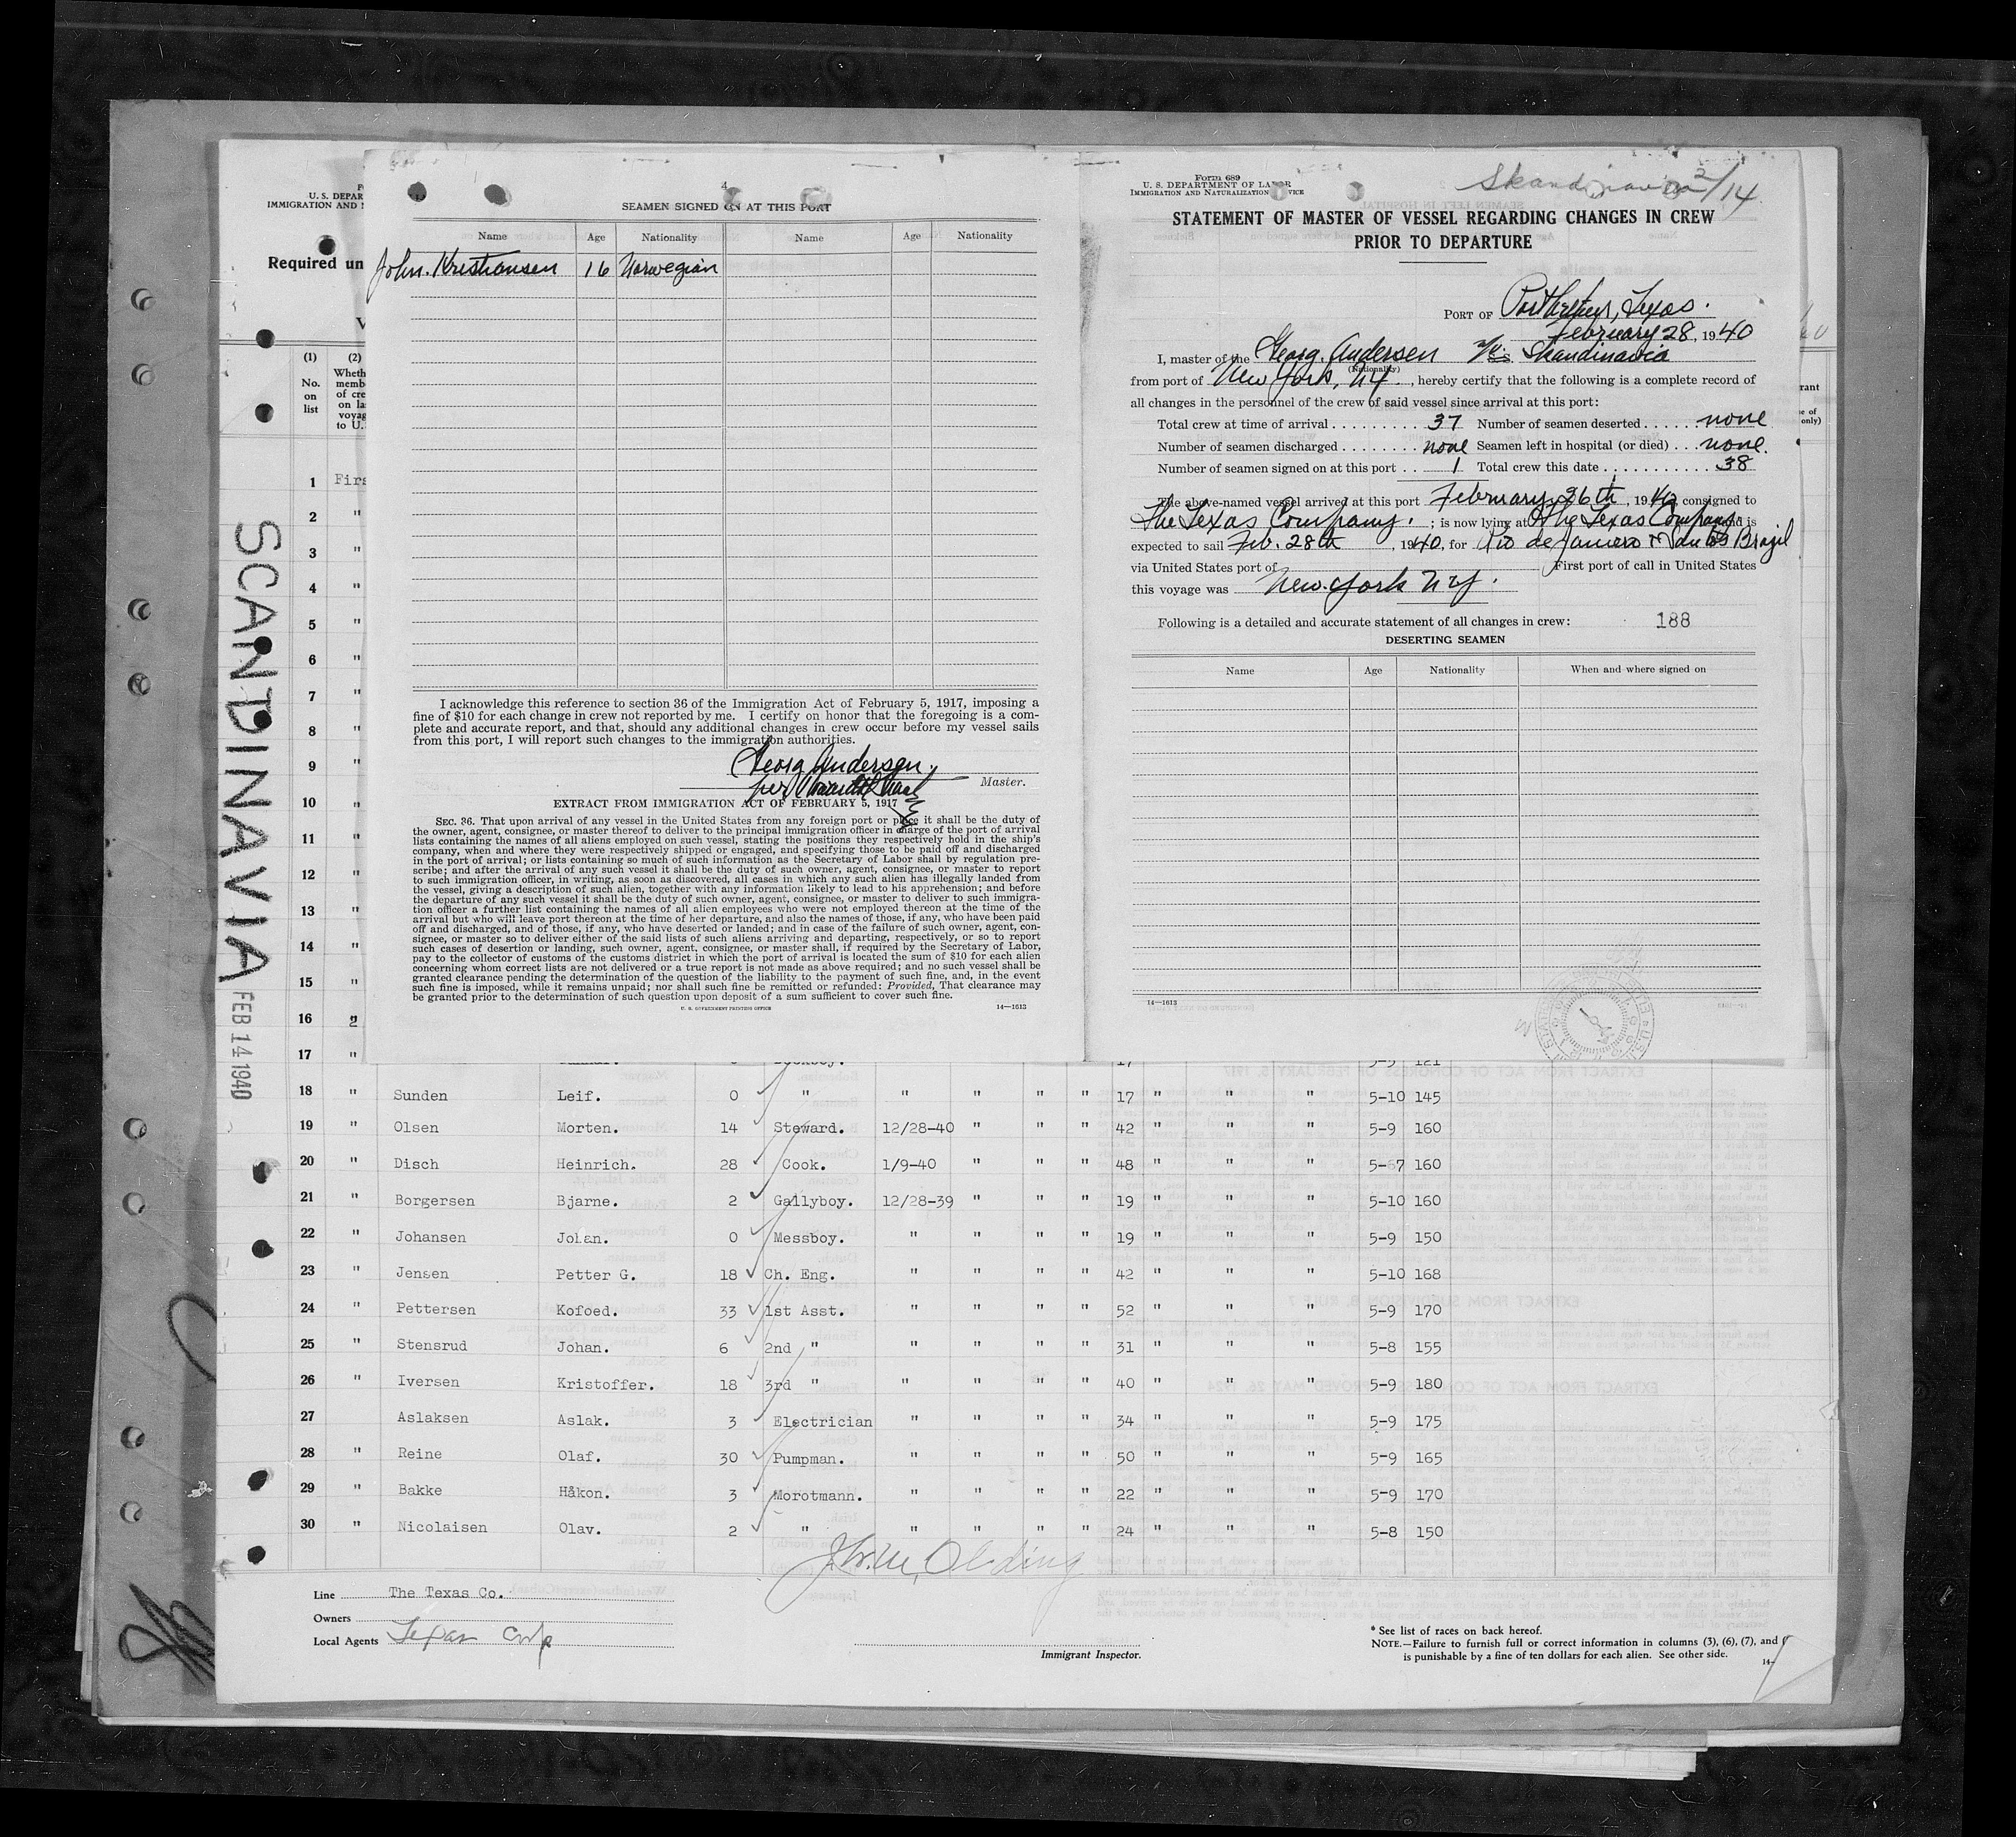 4
SEAMEN SIGNED ON AT THIS PORT
Name Age Nationality Name Age Nationality
John. Kristiansen 16 Norwegian
I acknowledge this reference to section 36 of the Immigration Act of February 5, 1917, imposing a
fine of $10 for each change in crew not reported by me. I certify on honor that the foregoing is a com-
plete and accurate report, and that, should any additional changes in crew occur before my vessel sails
from this port, I will report such changes to the immigration authorities.
Georg Andersen.
per
Master.
EXTRACT FROM IMMIGRATION ACT OF FEBRUARY 5, 1917
SEC. 36. That upon arrival of any vessel in the United States from any foreign port or place it shall be the duty of
the owner, agent, consignee, or master thereof to deliver to the principal immigration officer in charge of the port of arrival
lists containing the names of all aliens employed on such vessel, stating the positions they respectively hold in the ship's
company, when and where they were respectively shipped or engaged, and specifying those to be paid off and discharged
in the port of arrival; or lists containing so much of such information as the Secretary of Labor shall by regulation pre-
scribe; and after the arrival of any such vessel it shall be the duty of such owner, agent, consignee, or master to report
to such immigration officer, in writing, as soon as discovered, all cases in which any such alien has illegally landed from
the vessel, giving a description of such alien, together with any information likely to lead to his apprehension; and before
the departure of any such vessel it shall be the duty of such owner, agent, consignee, or master to deliver to such immigra-
tion officer a further list containing the names of all alien employees who were not employed thereon at the time of the
arrival but who will leave port thereon at the time of her departure, and also the names of those, if any, who have been paid
off and discharged, and of those, if any, who have deserted or landed; and in case of the failure of such owner, agent, con-
signee, or master so to deliver either of the said lists of such aliens arriving and departing, respectively, or so to report
such cases of desertion or landing, such owner, agent, consignee, or master shall, if required by the Secretary of Labor,
pay to the collector of customs of the customs district in which the port of arrival is located the sum of $10 for each alien
concerning whom correct lists are not delivered or a true report is not made as above required; and no such vessel shall be
granted clearance pending the determination of the question of the liability to the payment of such fine, and, in the event
such fine is imposed, while it remains unpaid; nor shall such fine be remitted or refunded: Provided, That clearance may
be granted prior to the determination of such question upon deposit of a sum sufficient to cover such fine.
U. S. GOVERNMENT PRINTING OFFICE 14—1613
Form 689
U. S. DEPARTMENT OF LABOR
IMMIGRATION AND NATURALIZATION SERVICE
Skandinavia 2/14
STATEMENT OF MASTER OF VESSEL REGARDING CHANGES IN CREW
PRIOR TO DEPARTURE
PORT OF Port Arthur, Texas.
February 28, 1940
I, master of the Georg. Andersen M/S. Skandinavia
(Nationality)
from port of New York, NY. , hereby certify that the following is a complete record of
all changes in the personnel of the crew of said vessel since arrival at this port:
Total crew at time of arrival 37 Number of seamen deserted none
Number of seamen discharged none Seamen left in hospital (or died) none.
Number of seamen signed on at this port 1 Total crew this date 38
The above-named vessel arrived at this port February 26th, 1940 consigned to
The Texas Company. ; is now lying at The Texas Company and is
expected to sail Feb. 28th, 1940, for Rio de Janiero & Santos Brazil
via United States port of First port of call in United States
this voyage was New York NY.
Following is a detailed and accurate statement of all changes in crew: 188
DESERTING SEAMEN
Name Age Nationality When and where signed on
14—1613
U. S. DEPAR
IMMIGRATION AND
Required un
V
(1) (2)
No. on list
Wheth
memb
of cre
on la
voyag
to U.
rant
e of
only)
SCANDINAVIA FEB 14 1940
1 Firs
2 "
3 "
4 "
5 "
6 "
7 "
8 "
9 "
10 "
11 "
12 "
13 "
14 "
15 "
16 "
17 " 17 5-5 121
18 " Sunden Leif. 0 " " " " " 17 " " " 5-10 145
19 " Olsen Morten. 14 Steward. 12/28-40 " " " 42 " " " 5-9 160
20 " Disch Heinrich. 28 Cook. 1/9-40 " " " 48 " " " 5-67 160
21 " Borgersen Bjarne. 2 Gallyboy. 12/28-39 " " " 19 " " " 5-10 160
22 " Johansen Johan. 0 Messboy. " " " " 19 " " " 5-9 150
23 " Jensen Petter G. 18 Ch. Eng. " " " " 42 " " " 5-10 168
24 " Pettersen Kofoed. 33 1st Asst. " " " " 52 " " " 5-9 170
25 " Stensrud Johan. 6 2nd " " " " " 31 " " " 5-8 155
26 " Iversen Kristoffer. 18 3rd " " " " " 40 " " " 5-9 180
27 " Aslaksen Aslak. 3 Electrician " " " " 34 " " " 5-9 175
28 " Reine Olaf. 30 Pumpman. " " " " 50 " " " 5-9 165
29 " Bakke Håkon. 3 Morotmann. " " " " 22 " " " 5-9 170
30 " Nicolaisen Olav. 2 " " " " " 24 " " " 5-8 150
Line The Texas Co.
Owners
Local Agents Texas Corp
Immigrant Inspector.
* See list of races on back hereof.
NOTE.—Failure to furnish full or correct information in columns (3), (6), (7), and (
is punishable by a fine of ten dollars for each alien. See other side.
14—